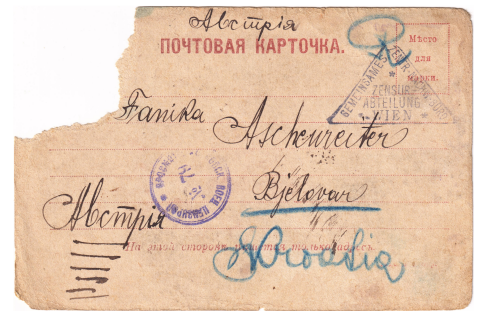 Австрія
ПОЧТОВАЯ КАРТОЧКА.
Мѣсто
для
марки.
GEMEINSAMES
ZENSUR
ABTEILUNG
WIEN
Fanika
Aschenreiter
Bjelovar
Австрія
На этой сторонѣ пишется только адресъ.
Kroatia